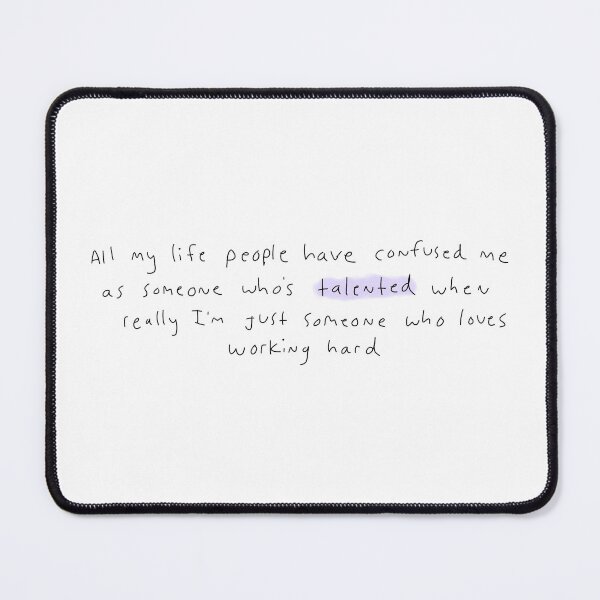 All my life people have confused me
as someone who's talented when
really I'm just someone who loves
working hard